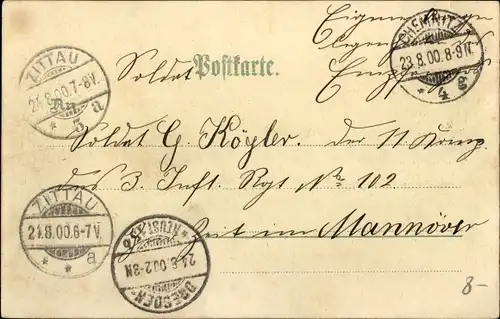 Eigenhändige
CHEMNITZ
23.8.00.8-9N.
* 4 g
ZITTAU
24.8.00.7-8V.
* 3 a
Soldat Postkarte.
An
Soldat G. Kögler. der 11 Komp.
des 3. Inft. Rgt No 102
Zeit im Mannöver
ZITTAU
24.8.00.6-7V.
* * a
DRESDEN-
NEUSTADT
24.8.00.2-3N
8-